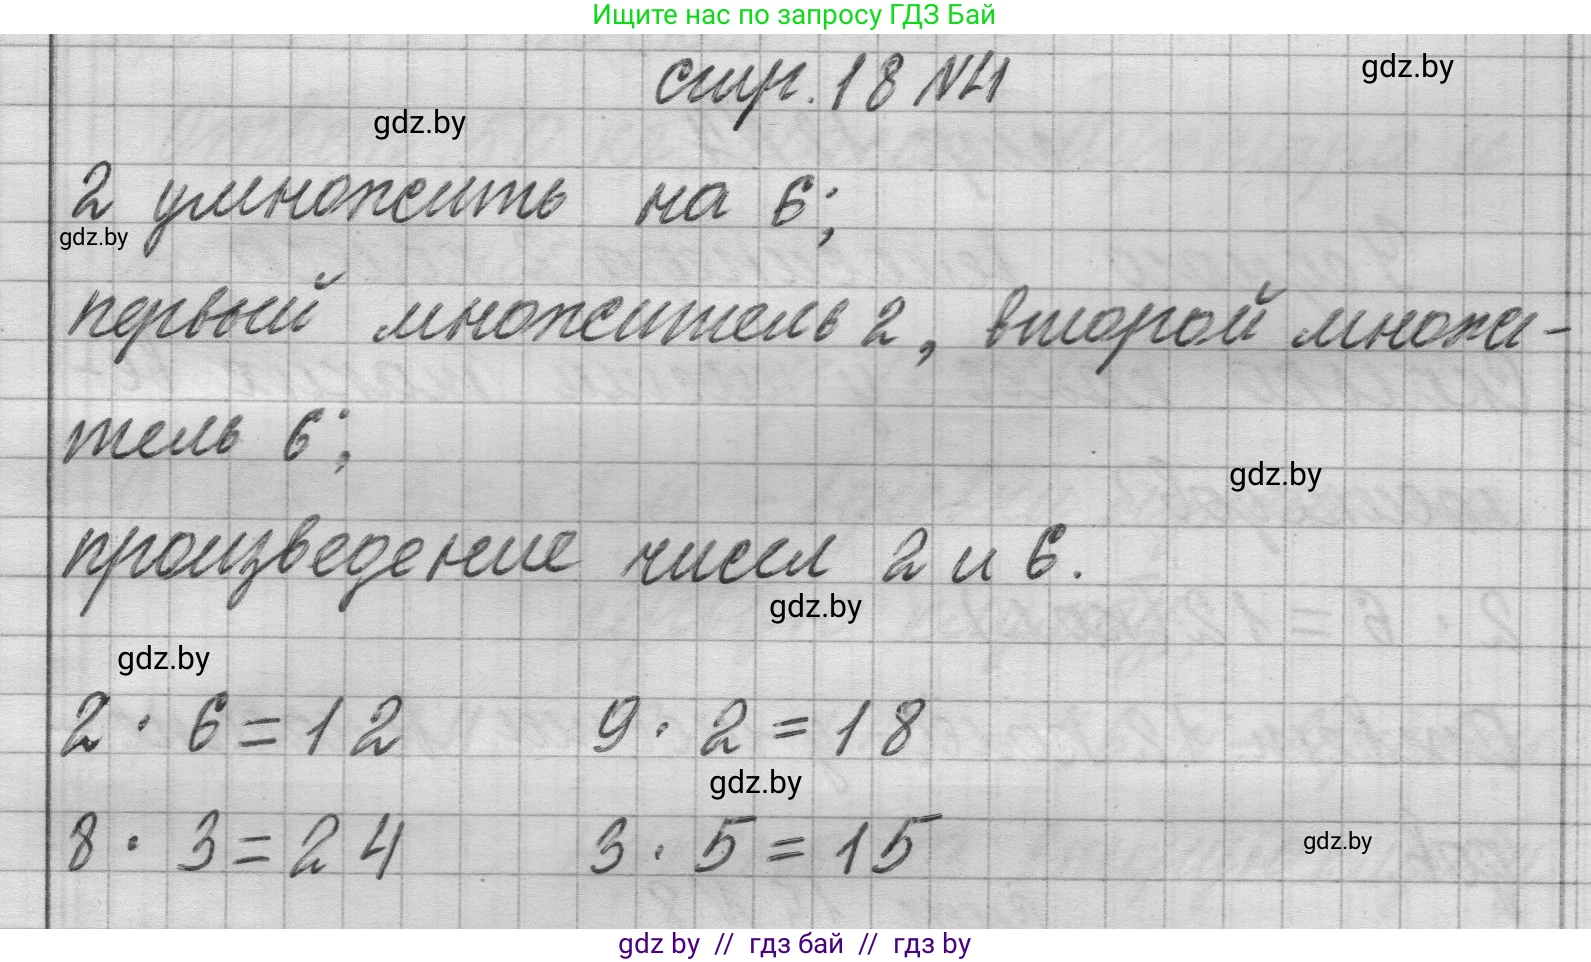 Ищите нас по запросу ГДЗ Бай
стр. 18 №1
gdz.by
gdz.by
2 умножить на 6;
gdz.by
первый множитель 2, второй множи-
тель 6;
gdz.by
произведение чисел 2 и 6.
gdz.by
gdz.by
2 · 6 = 12 9 · 2 = 18
gdz.by
8 · 3 = 24 3 · 5 = 15
gdz.by
gdz by // гдз бай // гдз by